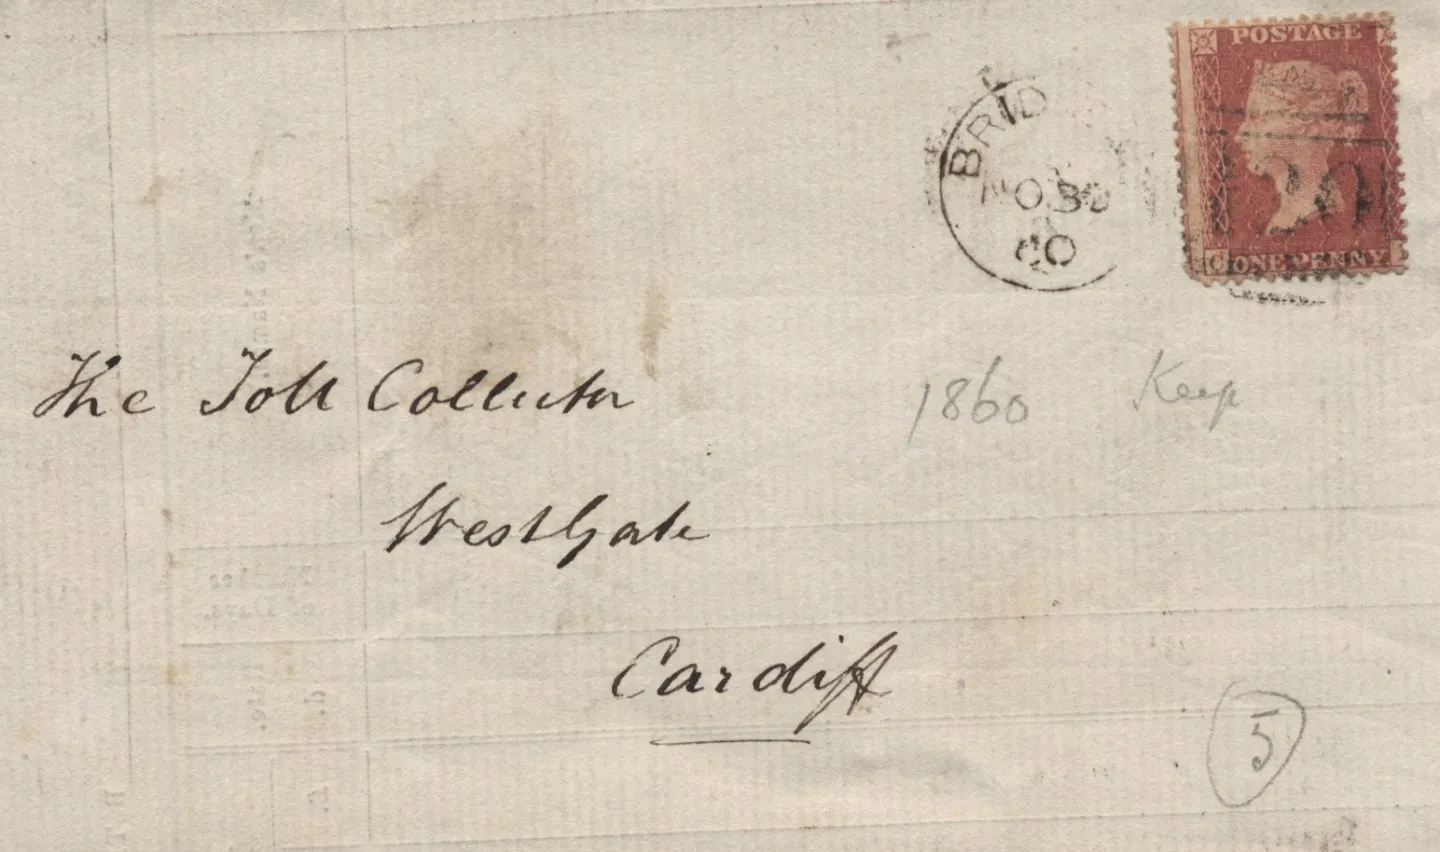 POSTAGE
BRID
NO 30
60
C ONE PENNY
The Toll Collector
1860 Keep
WestGate
Cardiff
5